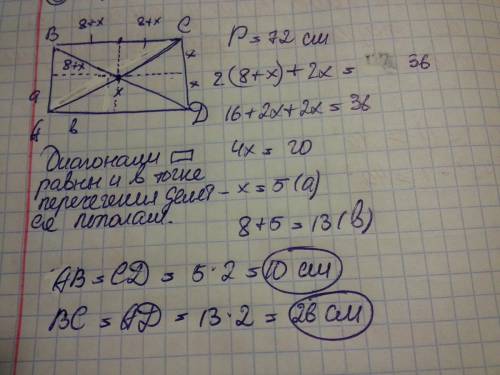 8+x 8+x
B C
x
8+x
x
x
a
A в D
P = 72 см
2(8+x)+2x = 36
16+2x+2x = 36
4x = 20
x = 5 (a)
8+5 = 13 (в)
Диагонали ▭
равны и в точке
пересечения делят-
ся пополам.
AB = CD = 5·2 = 10 см
BC = AD = 13·2 = 26 см